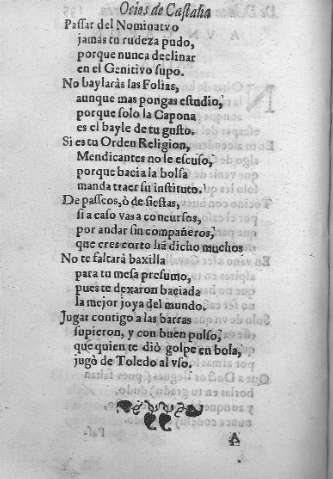 Ocios de Castalia
Passar del Nominatvo
jamas tu rudeza pudo,
porque nunca declinar
en el Genitivo supo.
No baylaràs las Folias,
aunque mas pongas estudio,
porque solo la Capona
es el bayle de tu gusto.
Si es tu Orden Religion,
Mendicantes no le escuso,
porque bacia la bolsa
manda traer su instituto.
De passeos, ò de siestas,
si a caso vas a concursos,
por andar sin compañeros,
que eres corto hã dicho muchos
No te faltarà baxilla
para tu mesa presumo,
pues te dexaron baciada
la mejor joya del mundo.
Jugar contigo a las barras
supieron, y con buen pulso,
que quien te diò golpe en bola,
jugò de Toledo al vso.
A